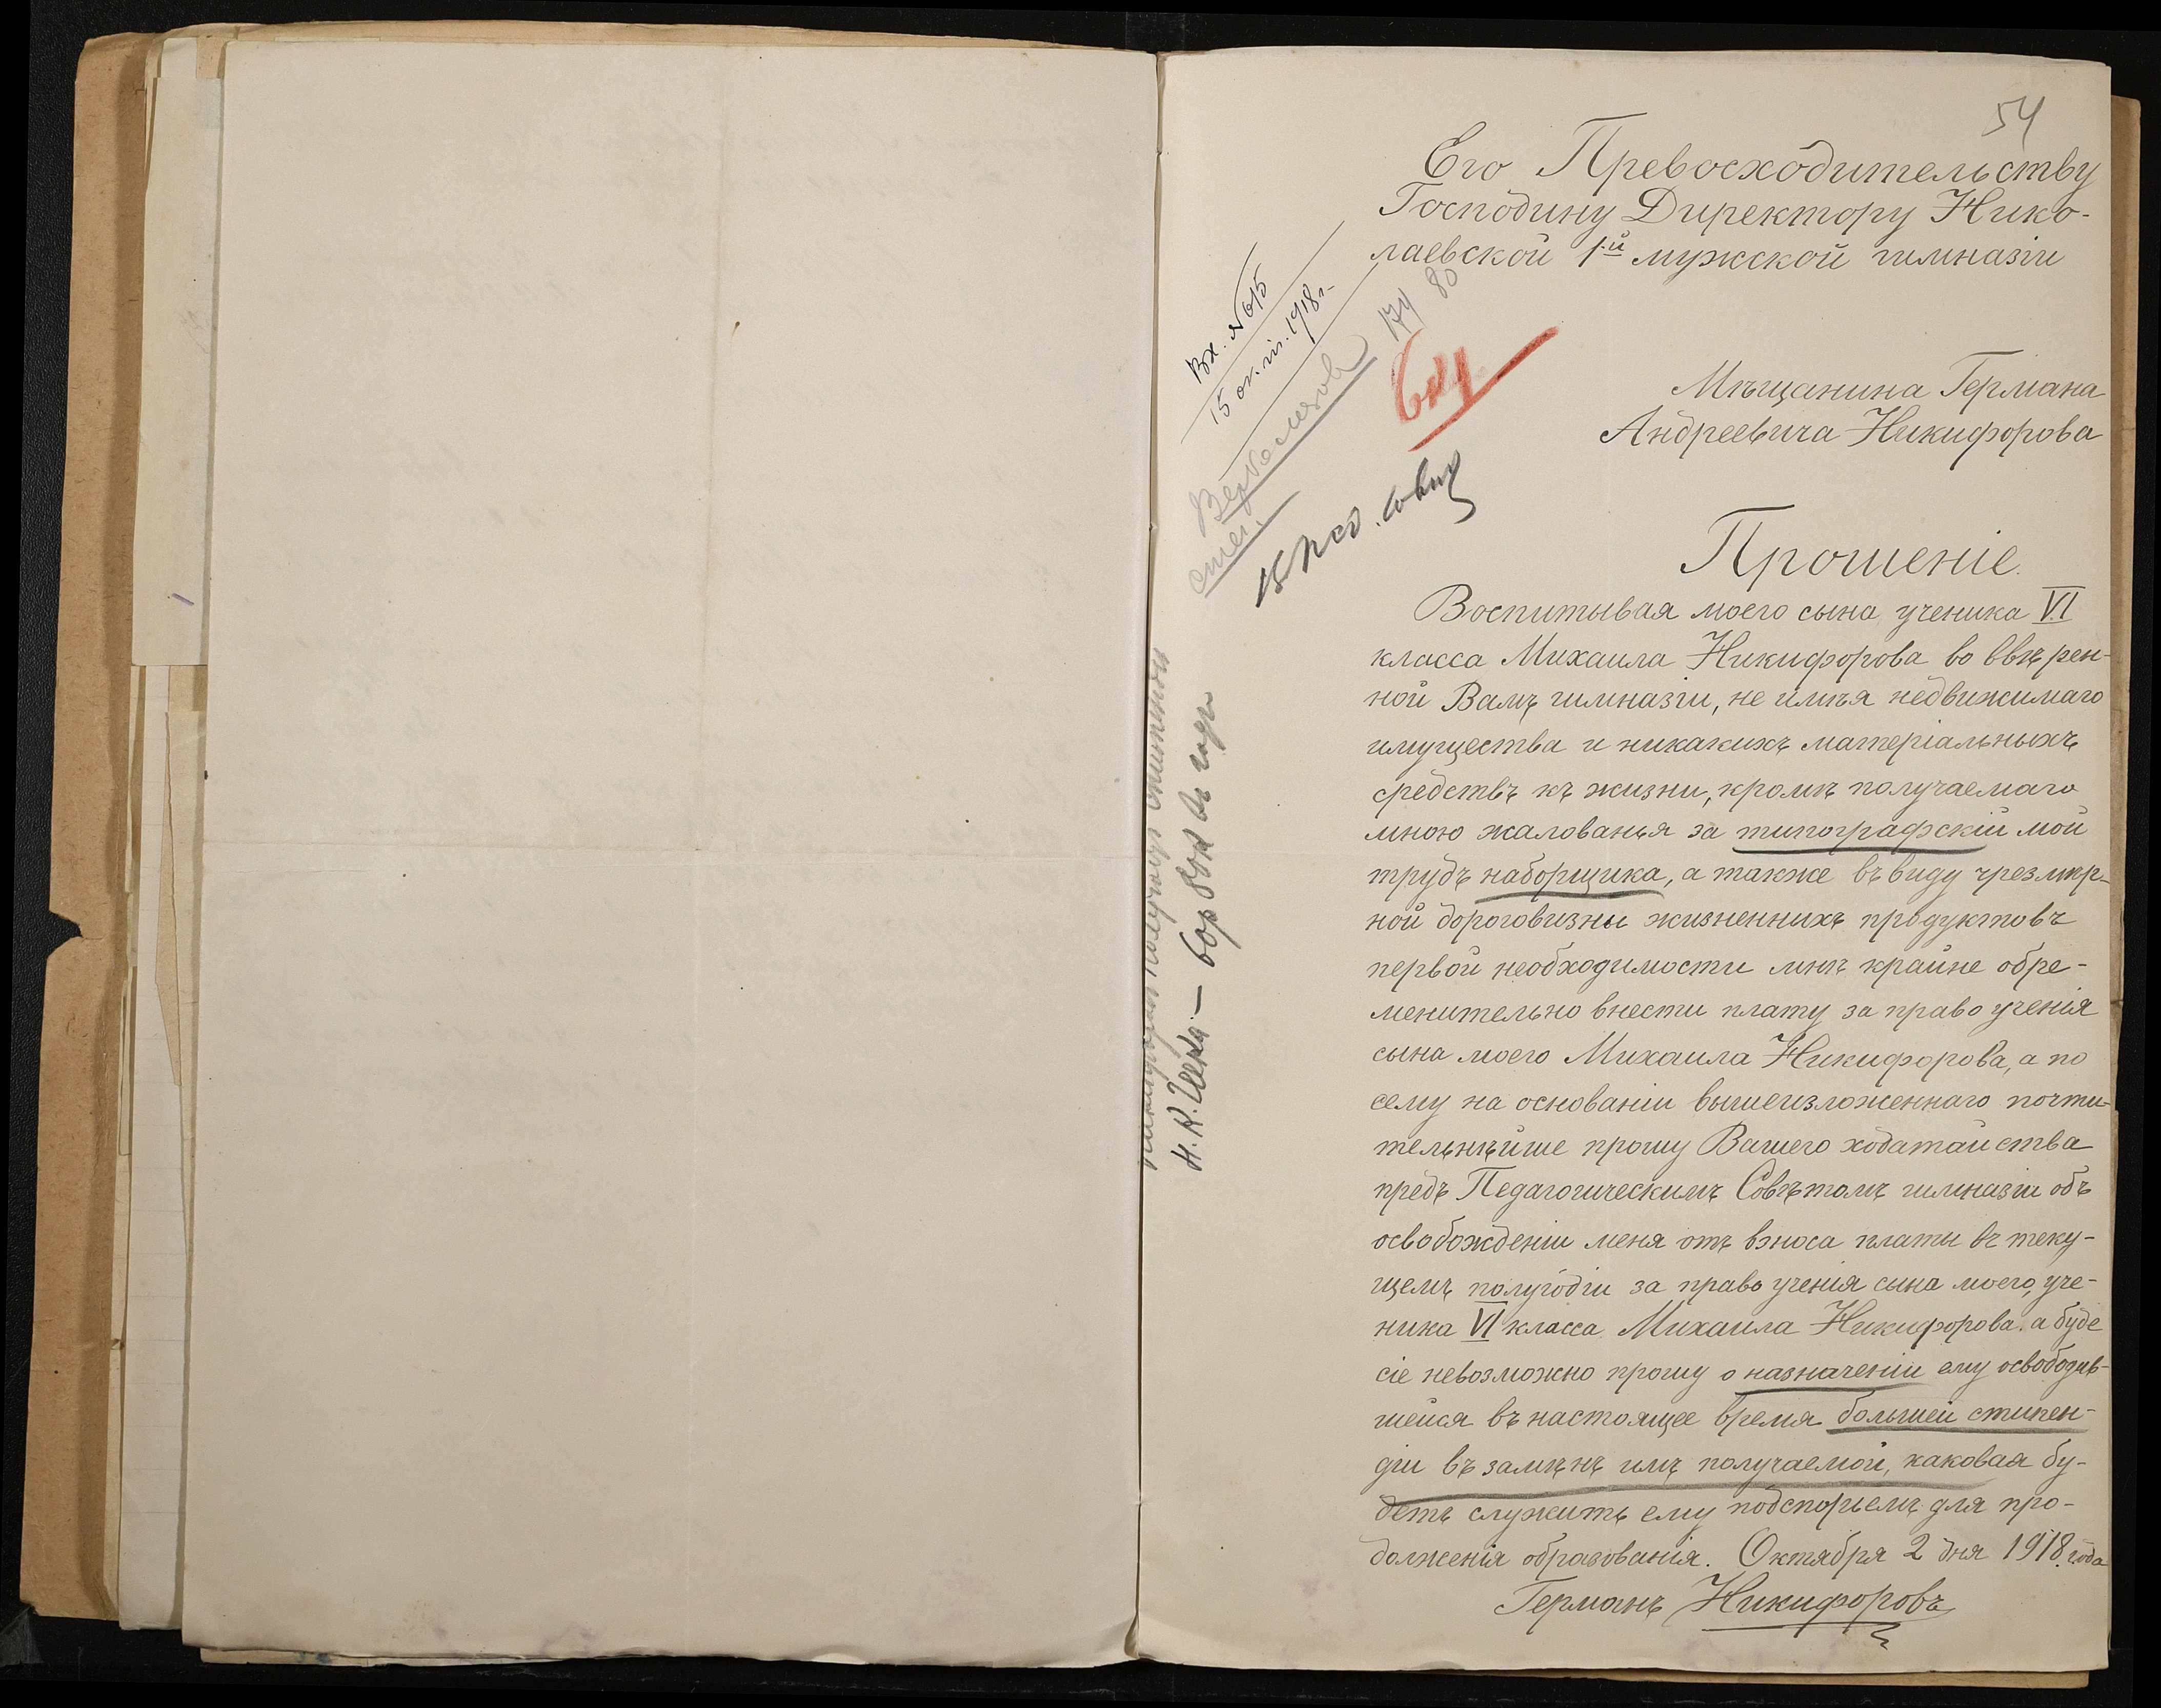 54
Его Превосходительству
Господину Директору Нико-
лаевской 1-й мужской гимназіи
Вх. №615
15 окт. 1918 г.
174 80
Мѣщанина Германа
Андреевича Никифорова
Прошеніе.
Воспитывая моего сына, ученика VI
класса Михаила Никифорова во ввѣрен-
ной Вамъ гимназіи, не имѣя недвижимаго
имущества и никакихъ матеріальныхъ
средствъ къ жизни, кромѣ получаемаго
мною жалованья за типографскій мой
трудъ наборщика, а также въ виду чрезмѣр-
ной дороговизны жизненныхъ продуктовъ
первой необходимости мнѣ крайне обре-
менительно внести плату за право ученія
сына моего Михаила Никифорова, а по
сему на основаніи вышеизложеннаго почти-
тельнѣйше прошу Вашего ходатайства
предъ Педагогическимъ Совѣтомъ гимназіи объ
освобожденіи меня отъ взноса платы въ теку-
щемъ полугодіи за право ученія сына моего, уче-
ника VI класса Михаила Никифорова. а буде
сіе невозможно прошу о назначеніи ему освободив-
шейся въ настоящее время большей стипен-
діи въ замѣнъ имъ получаемой, каковая бу-
детъ служить ему подспорьемъ для про-
долженія образованія. Октября 2 дня 1918 года
Германъ Никифоровъ
Никифоровъ получаетъ стипендію
въ годъ